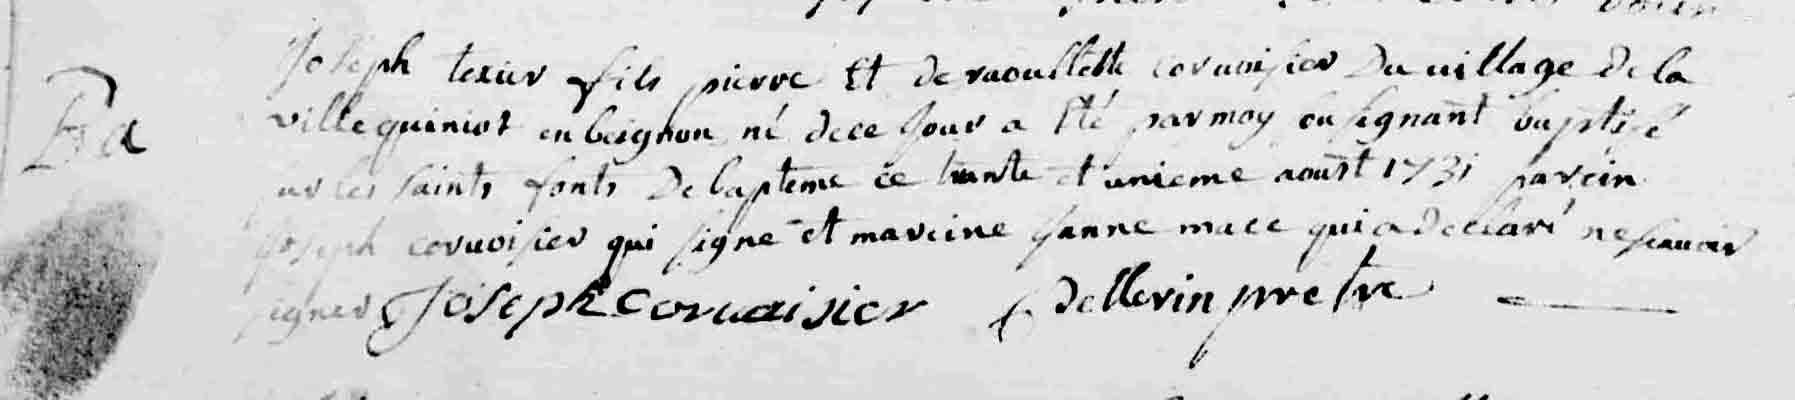 Ba
Joseph texier fils pierre Et de raoullette corvoisier Du village de la
ville quiniot en beignon né de ce jour a Eté par moy sousignant baptisé
sur les saints fonts De bapteme ce trante et unieme aoust 1731 parein
joseph corvoisier qui signe et mareine janne mace qui a declaré ne scauoir
signer Joseph Corvaisier dellerin pretre